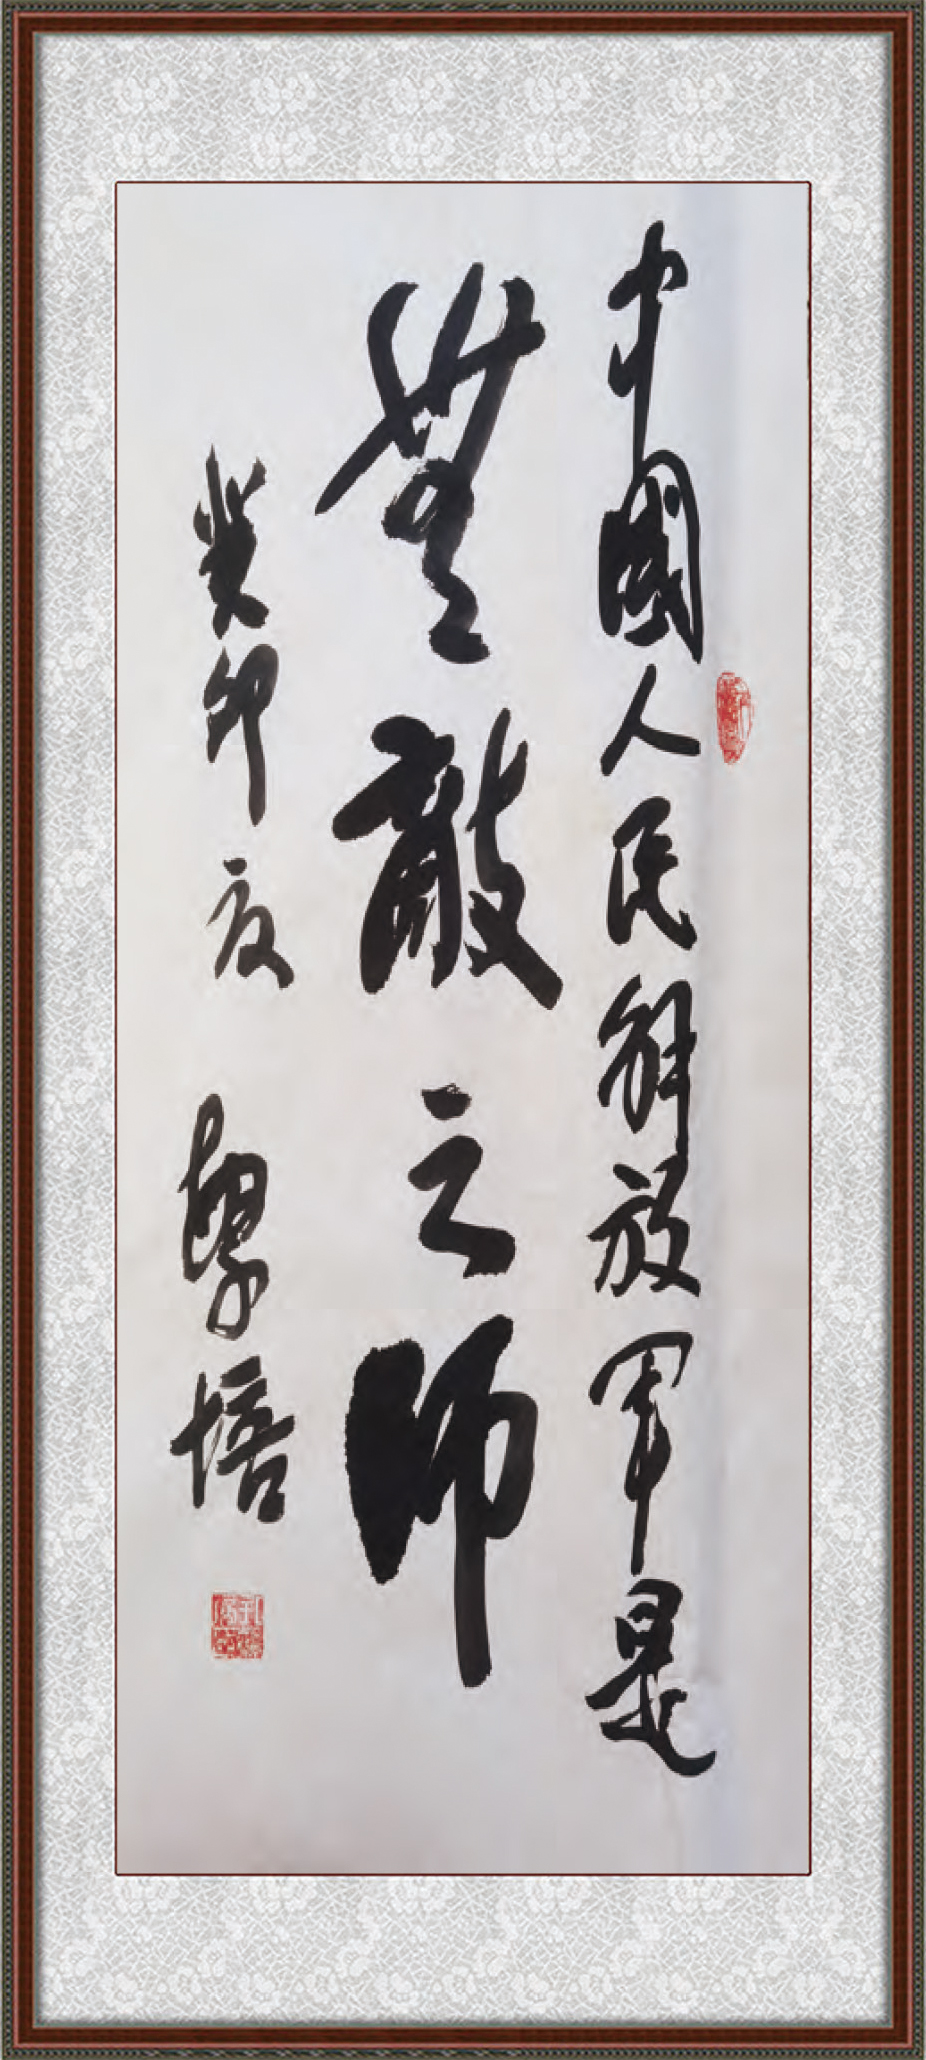 中國人民解放軍是
無敵之師
癸卯夏 學培